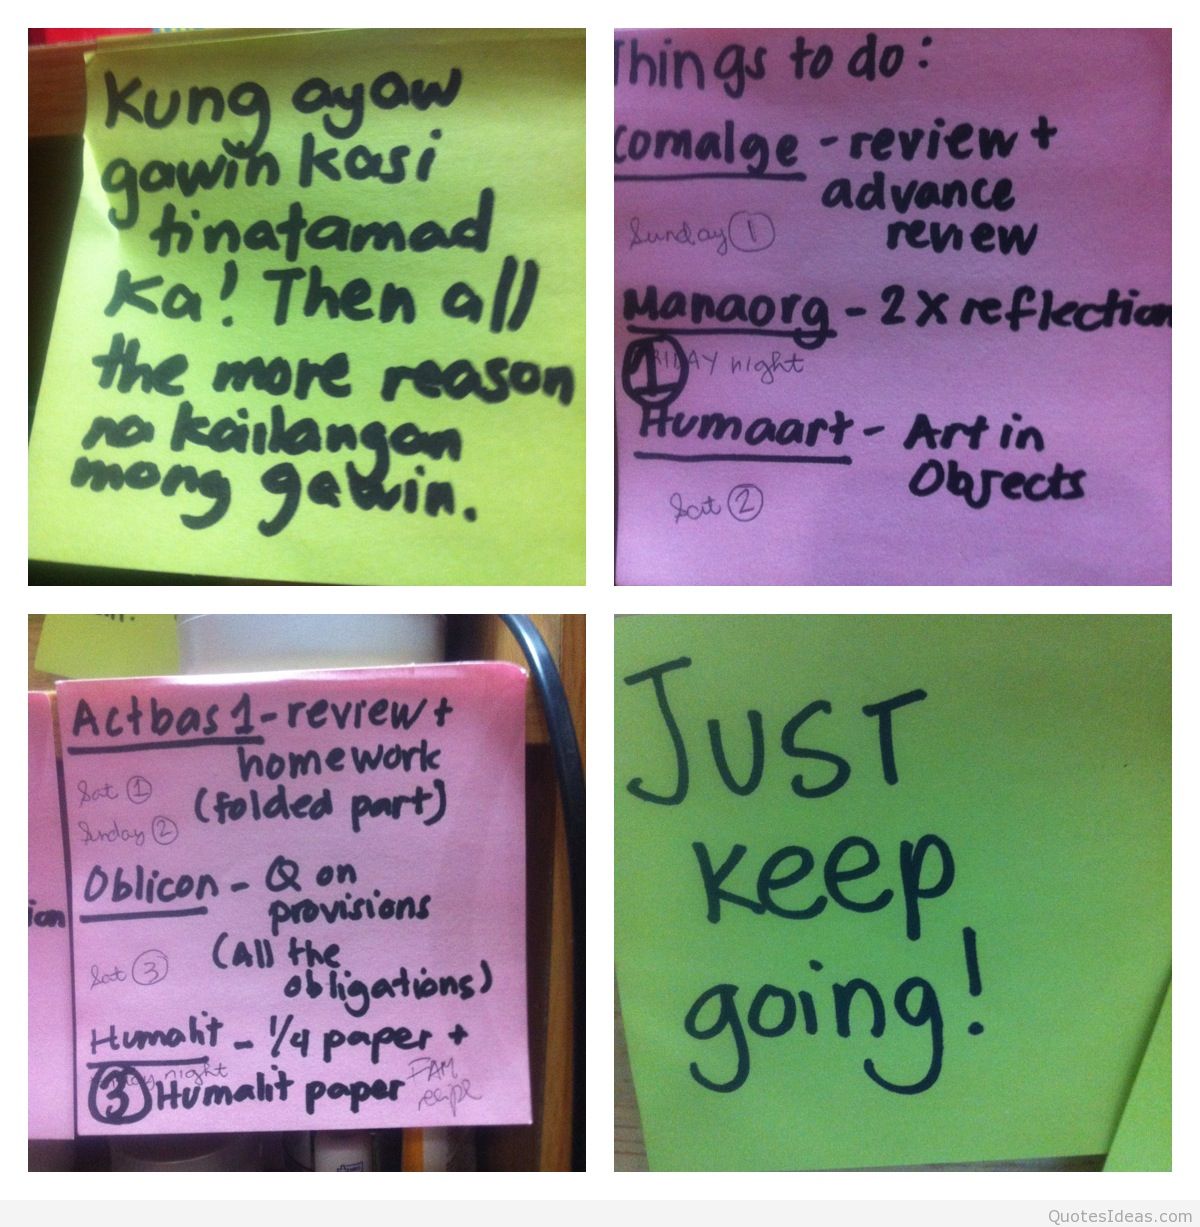 Kung ayaw
gawin kasi
tinatamad
ka! Then all
the more reason
na kailangan
mong gawin.
Things to do:
Comalge - review +
advance
review
Sunday 1
Manaorg - 2 x reflection
FRIDAY night
1
Humaart - Art in
Objects
Sat 2
Actbas 1 - review +
homework
(folded part)
Sat 1
Sunday 2
Oblicon - Q on
provisions
(All the
obligations)
Sat 3
ion
Humalit - 1/4 paper +
night
3 Humalit paper
Just
keep
going!
QuotesIdeas.com